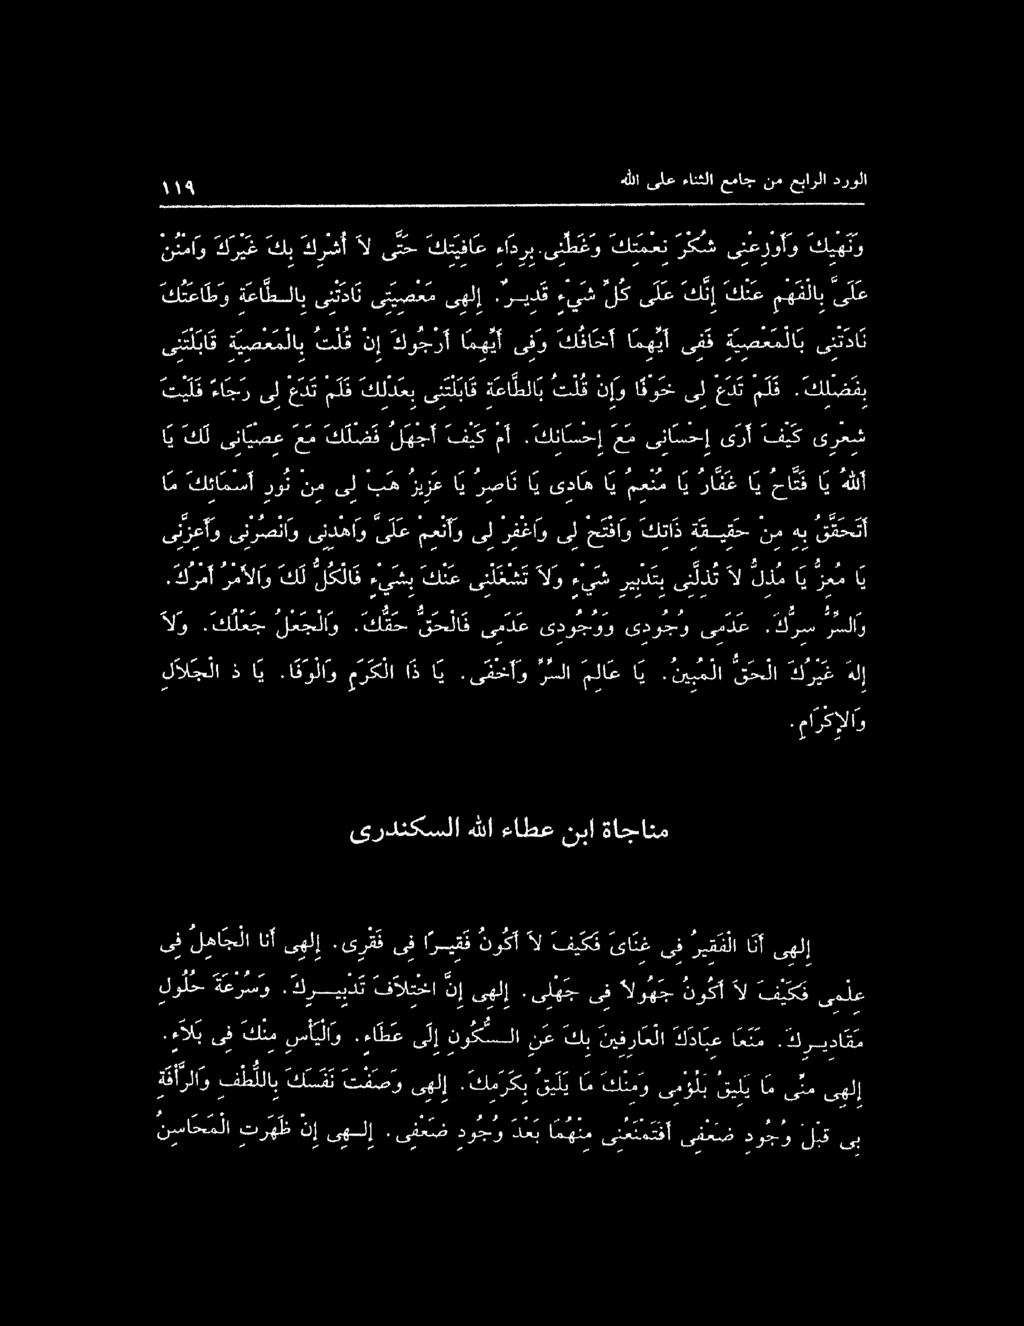 الورد الرابع من جامع الثناء على الله ١١٩
وَنَهْيِكَ وَأَوْزِعْنِى شُكْرَ نِعْمَتِكَ وَغَطِّنِى. بِرِدَاءِ عَافِيَتِكَ حَتَّى لاَ أُشْرِكَ بِكَ غَيْرَكَ وَامْنُنْ
عَلَىَّ بِالْفَهْمِ عَنْكَ إِنَّكَ عَلَى كُلِّ شَيْءٍ قَدِيـرٌ. إِلهِى مَعْصِيَتِى نَادَتْنِى بِالـطَّاعَةِ وَطَاعَتُكَ
نَادَتْنِى بَالْمَعْصِيَةِ فَفِى أَيِّهِمَا أَخَافُكَ وَفِى أَيِّهِمَا أَرْجُوكَ إِنْ قُلْتُ بِالْمَعْصِيَةِ قَابَلْتَنِى
بِفَضْلِكَ. فَلَمْ تَدَعْ لِى خَوْفًا وَإِنْ قُلْتُ بَالطَّاعَةِ قَابَلْتَنِى بِعَدْلِكَ فَلَمْ تَدَعْ لِى رَجَاءً فَلَيْتَ
شِعْرِى كَيْفَ أَرَى إِحْسَانِى مَعَ إِحْسَانِكَ. أَمْ كَيْفَ أَجْهَلُ فَضْلَكَ مَعَ عِصْيَانِى لَكَ يَا
اَللهُ يَا فَتَّاحُ يَا غَفَّارُ يَا مُنْعِمُ يَا هَادِى يَا نَاصِرُ يَا عَزِيزُ هَبْ لِى مِنْ نُورِ أَسْمَائِكَ مَا
أَتَحَقَّقُ بِهِ مِنْ حَقِيـقَةِ ذَاتِكَ وَافْتَحْ لِى وَاغْفِرْ لِى وَأَنْعِمْ عَلَىَّ وَاهْدِنِى وَانْصُرْنِى وَأَعِزَّنِى
يَا مُعِزُّ يَا مُذِلُّ لاَ تُذِلَّنِى بِتَدْبِيرِ شَيْءٍ وَلاَ تَشْغَلْنِى عَنْكَ بِشَيْءٍ فَالْكُلُّ لَكَ وَالأَمْرُ أَمْرُكَ.
وَالسِّرُّ سِرُّكَ. عَدَمِى وُجُودِى وَوُجُودِى عَدَمِى فَالْحَقُّ حَقُّكَ. وَالْجَعْلُ جَعْلُكَ. وَلاَ
إِلهَ غَيْرُكَ الْحَقُّ الْمُبِينُ. يَا عَالِمَ السِّرِّ وَأَخْفَى. يَا ذَا الْكَرَمِ وَالْوَفَا. يَا ذ الْجَلاَلِ
وَالإِكْرَامِ.
مناجاة ابن عطاء الله السكندرى
إِلهِى أَنَا الْفَقِيرُ فِى غِنَاىَ فَكَيْفَ لاَ أَكُونُ فَقِيـرًا فِى فَقْرِى. إِلهِى أَنَا الْجَاهِلُ فِى
عِلْمِى فَكَيْفَ لاَ أَكُونُ جَهُولاً فِى جَهْلِى. إِلهِى إِنَّ اخْتِلاَفَ تَدْبِيـــرِكَ. وَسُرْعَةَ حُلُولِ
مَقَادِيـرِكَ. مَنَعَا عِبَادَكَ الْعَارِفِينَ بِكَ عَنِ الـسُّكُونِ إِلَى عَطَاءٍ. وَالْيَأْسِ مِنْكَ فِى بَلاَءٍ.
إِلهِى مِنِّى مَا يَلِيقُ بَلُؤْمِى وَمِنْكَ مَا يَلِيقُ بِكَرَمِكَ. إِلهِى وَصَفْتَ نَفْسَكَ بِاللُّطْفِ وَالرَّأْفَةِ
بِى قَبْلَ وُجُودِ ضَعْفِى أَفَتَمْنَعُنِى مِنْهُمَا بَعْدَ وُجُودِ ضَعْفِى. إِلـهِى إِنْ ظَهَرَتِ الْمَحَاسِنُ